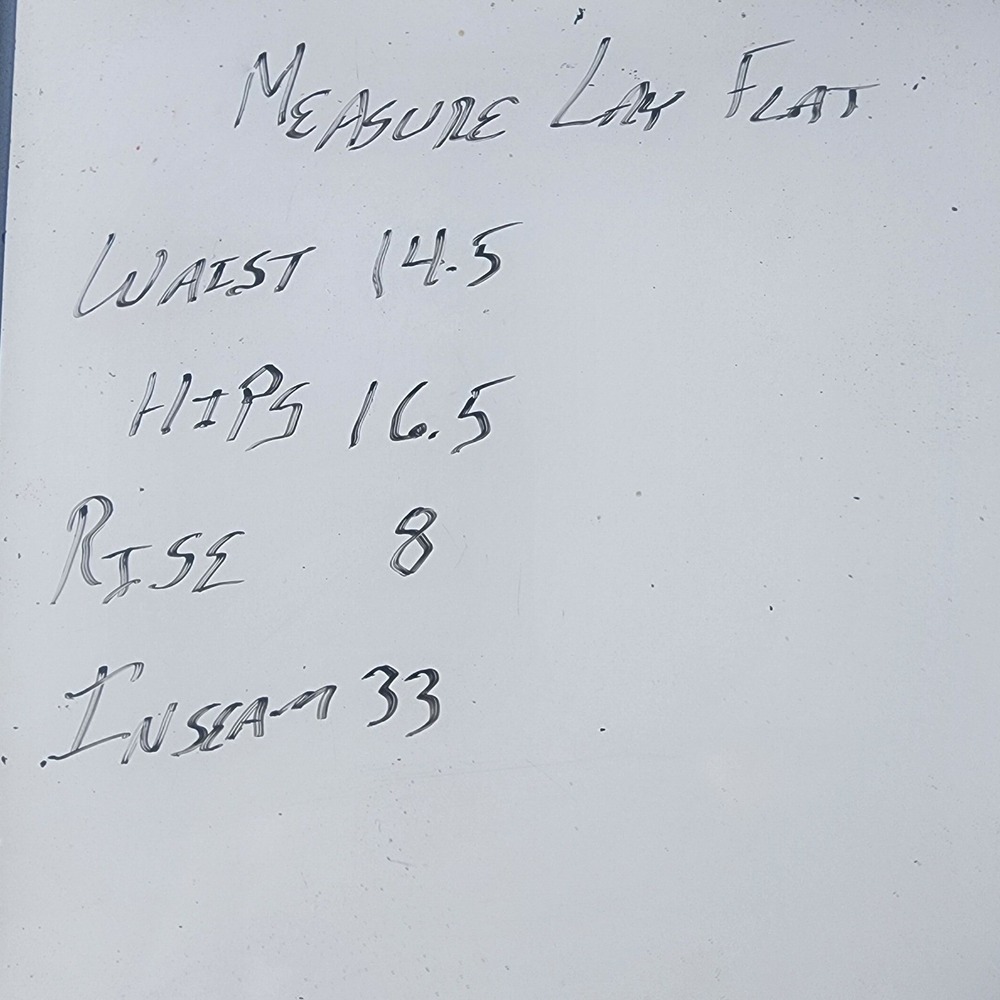 MEASURE LAY FLAT
WAIST 14.5
HIPS 16.5
RISE 8
INSEAM 33